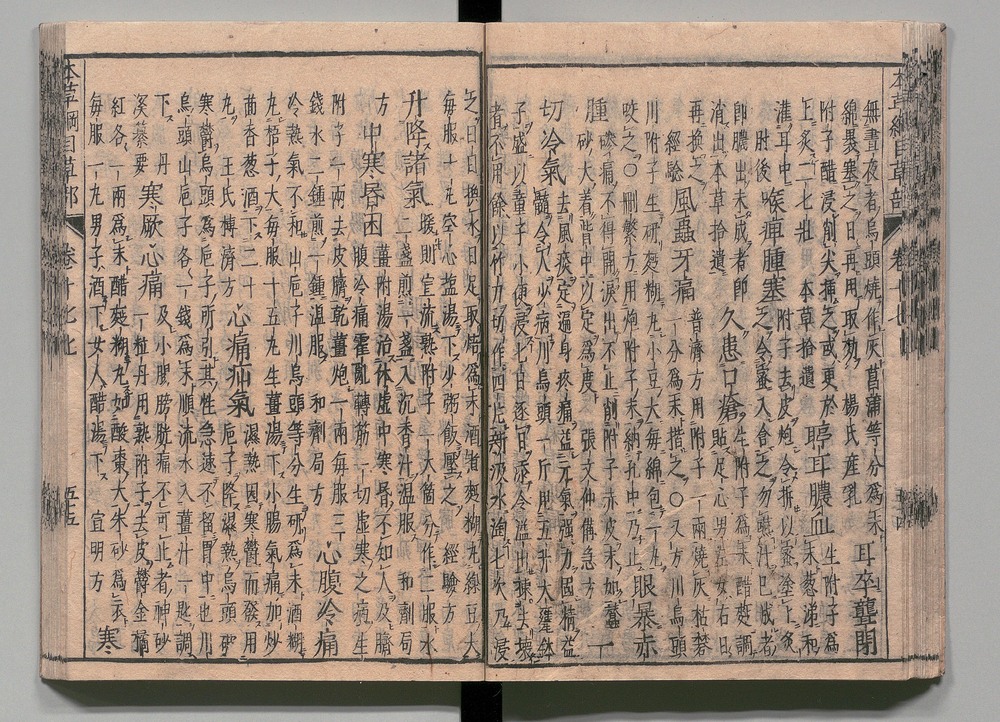 無晝夜者烏頭燒作灰菖蒲等分爲末 耳卒聾閉
綿裹塞之日再用取効 楊氏産乳
附子醋浸削尖插之或更於 聤耳膿血 生附子爲
上炙二七壯 本草拾遺 末葱涕和
灌耳中 附子去皮炮令拆以蜜塗上炙
肘後 喉痺腫塞 之令蜜入含之勿嚥汁已成者
即膿出未成者即 久患口瘡 生附子爲末醋麪調
消出本草拾遺 貼足心男左女右日
再換之 普濟方用附子一兩燒灰枯礬
經驗 風蟲牙痛 一分爲末揩之○又方川烏頭
川附子生研麪糊丸小豆大每綿包一丸 眼暴赤
咬之○刪繁方用炮附子末納孔中乃止
腫 磣痛不得開淚出不止削附子赤皮末如蠶 一
月砂大着眥中以定爲度 張文仲備急方
切冷氣 去風痰定遍身疼痛益元氣强力固精益
髓令人少病川烏頭一斤用五升大瓷鉢
子盛以童子小便浸七日逐日添令溢出揀去壞
者不用餘以竹刀切作四片新汲水淘七次乃浸
之日日換水日足取焙爲末酒煮麪糊丸綠豆大
每服十丸空心鹽湯下少粥飯壓之 經驗方
升降諸氣 暖則宣流熟附子一大箇分作二服水
二盞煎一盞入沉香汁溫服 和劑局
方 中寒昏困 薑附湯治体虛中寒昏不知人及臍
腹冷痛霍亂轉筋一切虛寒之病生
附子一兩去皮臍乾薑炮一兩每服三
錢水二鍾煎一鍾溫服 和劑局方 心腹冷痛
冷熱氣不和山梔子川烏頭等分生研爲末酒糊
丸梧子大每服十五丸生薑湯下小腸氣痛加炒
茴香葱酒下二十 濕熱因寒鬱而發用
丸 王氏博濟方 心痛疝氣 梔子降濕熱烏頭破
寒鬱烏頭爲梔子所引其性急速不留胃中也川
烏頭山梔子各一錢爲末順流水入薑汁一匙調
下 丹 寒厥心痛 及小腸膀胱痛不可止者神砂
溪纂要 一粒丹用熟附子去皮鬱金橘
紅各一兩爲末醋麪糊丸如酸棗大朱砂爲衣 寒
每服一丸男子酒下女人醋湯下 宣明方
本草綱目草部 卷十七 五五